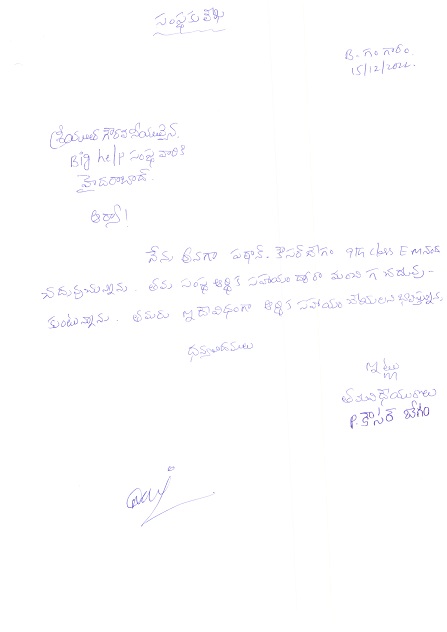 సంస్థకు లేఖ
B. గంగారం.
15/12/2022.
శ్రీయుత గౌరవనీయులైన,
Big help సంస్థ వారికి
హైదరాబాద్.
ఆర్యా!
నేను అనగా పఠాన్. కౌసర్ బేగం 9th class E
చదువుచున్నాను. తమ సంస్థ ఆర్థిక సహాయం ద్వారా మంచిగ చదువు-
కుంటున్నాను. తమరు ఇదేవిధంగా ఆర్థిక సహాయం చేయాలని
ధన్యవాదములు
ఇట్లు
తమ విధేయురాలు
P. కౌసర్ బేగం